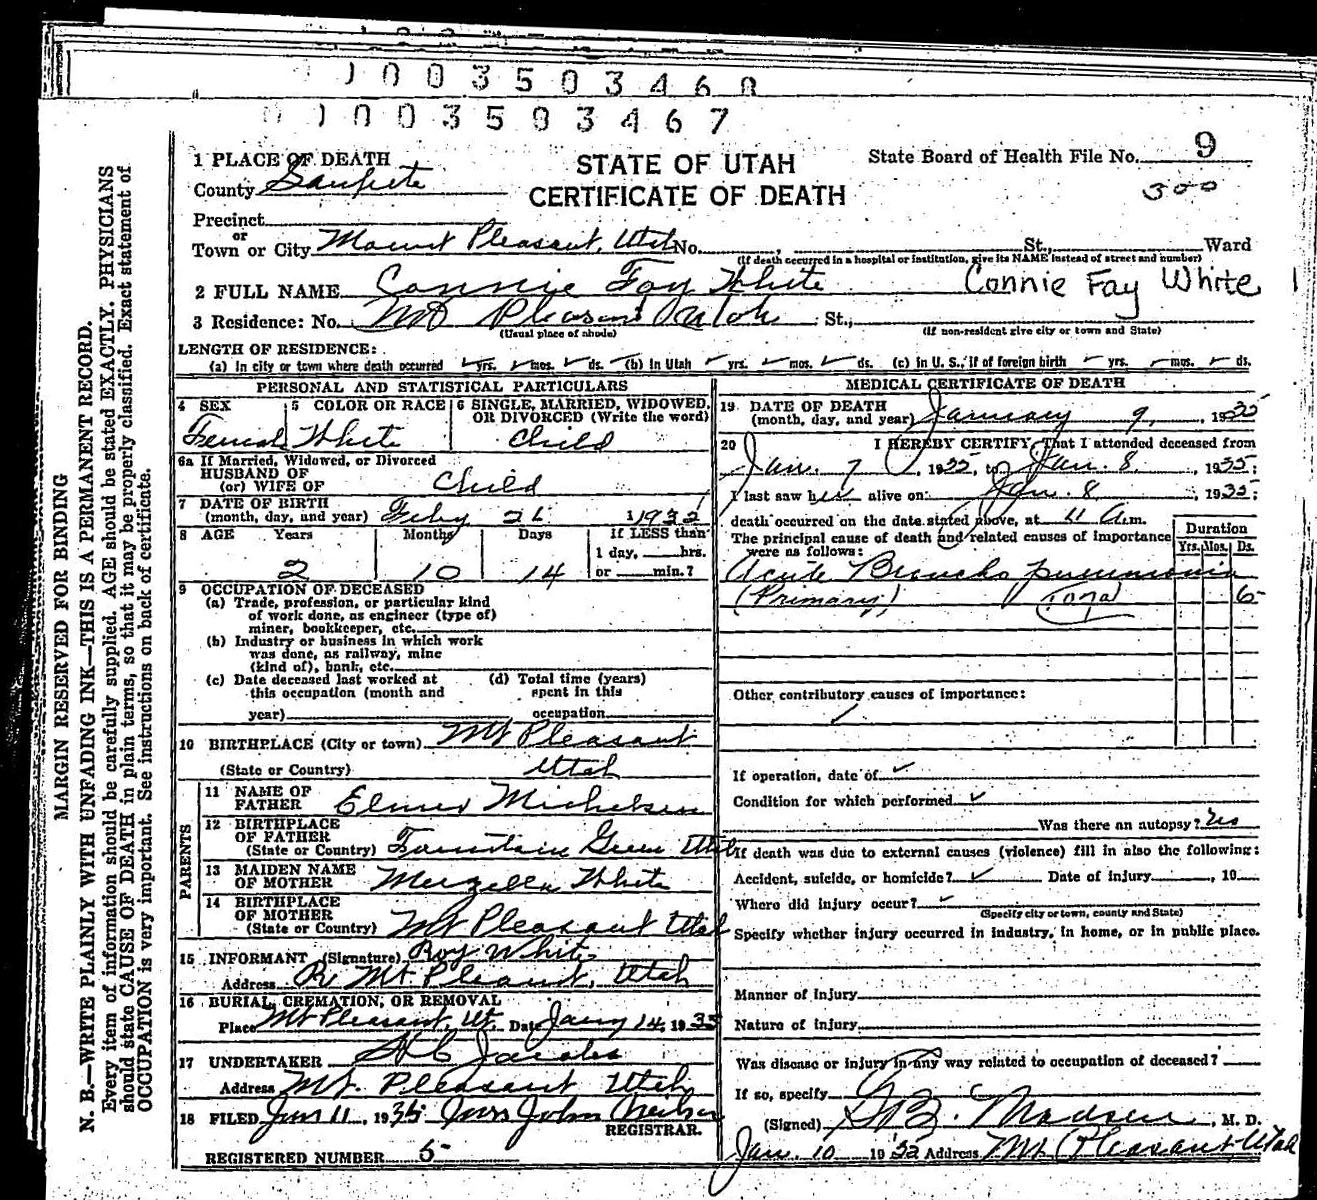 1 0 0 3 5 0 3 4 6 8
0 1 0 0 3 5 0 3 4 6 7
MARGIN RESERVED FOR BINDING
N. B.—WRITE PLAINLY WITH UNFADING INK—THIS IS A PERMANENT RECORD.
Every item of information should be carefully supplied. AGE should be stated EXACTLY. PHYSICIANS
should state CAUSE OF DEATH in plain terms, so that it may be properly classified. Exact statement of
OCCUPATION is very important. See instructions on back of certificate.
STATE OF UTAH
CERTIFICATE OF DEATH
State Board of Health File No. 9
300
1 PLACE OF DEATH
County Sanpete
Precinct
or
Town or City Mount Pleasant, Utah No. , St., Ward
(If death occurred in a hospital or institution, give its NAME instead of street and number)
2 FULL NAME Connie Fay White Connie Fay White
3 Residence: No. Mt Pleasant Utah St.,
(Usual place of abode) (If non-resident give city or town and State)
LENGTH OF RESIDENCE:
(a) In city or town where death occurred yrs. mos. ds. (b) In Utah yrs. mos. ds. (c) in U. S., if of foreign birth yrs. mos. ds.
PERSONAL AND STATISTICAL PARTICULARS
4 SEX Female
5 COLOR OR RACE White
6 SINGLE, MARRIED, WIDOWED,
OR DIVORCED (Write the word)
Child
6a If Married, Widowed, or Divorced
HUSBAND OF
(or) WIFE OF Child
7 DATE OF BIRTH
(month, day, and year) Feby 26 1932
8 AGE Years Months Days If LESS than
1 day, hrs.
or min.?
2 10 14
9 OCCUPATION OF DECEASED
(a) Trade, profession, or particular kind
of work done, as engineer (type of)
miner, bookkeeper, etc.
(b) Industry or business in which work
was done, as railway, mine
(kind of), bank, etc.
(c) Date deceased last worked at
this occupation (month and
year)
(d) Total time (years)
spent in this
occupation
10 BIRTHPLACE (City or town) Mt Pleasant
(State or Country) Utah
PARENTS
11 NAME OF
FATHER Elmer Michelsen
12 BIRTHPLACE
OF FATHER
(State or Country) Fountain Green Utah
13 MAIDEN NAME
OF MOTHER White
14 BIRTHPLACE
OF MOTHER
(State or Country) Mt Pleasant Utah
15 INFORMANT (Signature) Roy White
Address Mt. Pleasant, Utah
16 BURIAL, CREMATION, OR REMOVAL
Place Mt Pleasant, Ut. Date Jany 14, 1935
17 UNDERTAKER Jacobs
Address Mt. Pleasant Utah
18 FILED Jan 11, 1935 Mrs John Neilsen
REGISTRAR.
REGISTERED NUMBER 5
MEDICAL CERTIFICATE OF DEATH
19 DATE OF DEATH
(month, day, and year) January 9, 1935
20 I HEREBY CERTIFY, That I attended deceased from
Jan. 7, 1935, to Jan. 8, 1935;
I last saw her alive on Jan. 8, 1935;
death occurred on the date stated above, at 11 a.m.
The principal cause of death and related causes of importance
were as follows:
Duration
Yrs. Mos. Ds.
Acute Broncho pneumonia
(Primary) 107a 6
Other contributory causes of importance:
If operation, date of
Condition for which performed
Was there an autopsy?
If death was due to external causes (violence) fill in also the following:
Accident, suicide, or homicide? Date of injury , 19
Where did injury occur?
(Specify city or town, county and State)
Specify whether injury occurred in industry, in home, or in public place.
Manner of injury
Nature of injury
Was disease or injury in any way related to occupation of deceased?
If so, specify
(Signed) Madsen, M. D.
Jan. 10 1935 Address Mt. Pleasant Utah